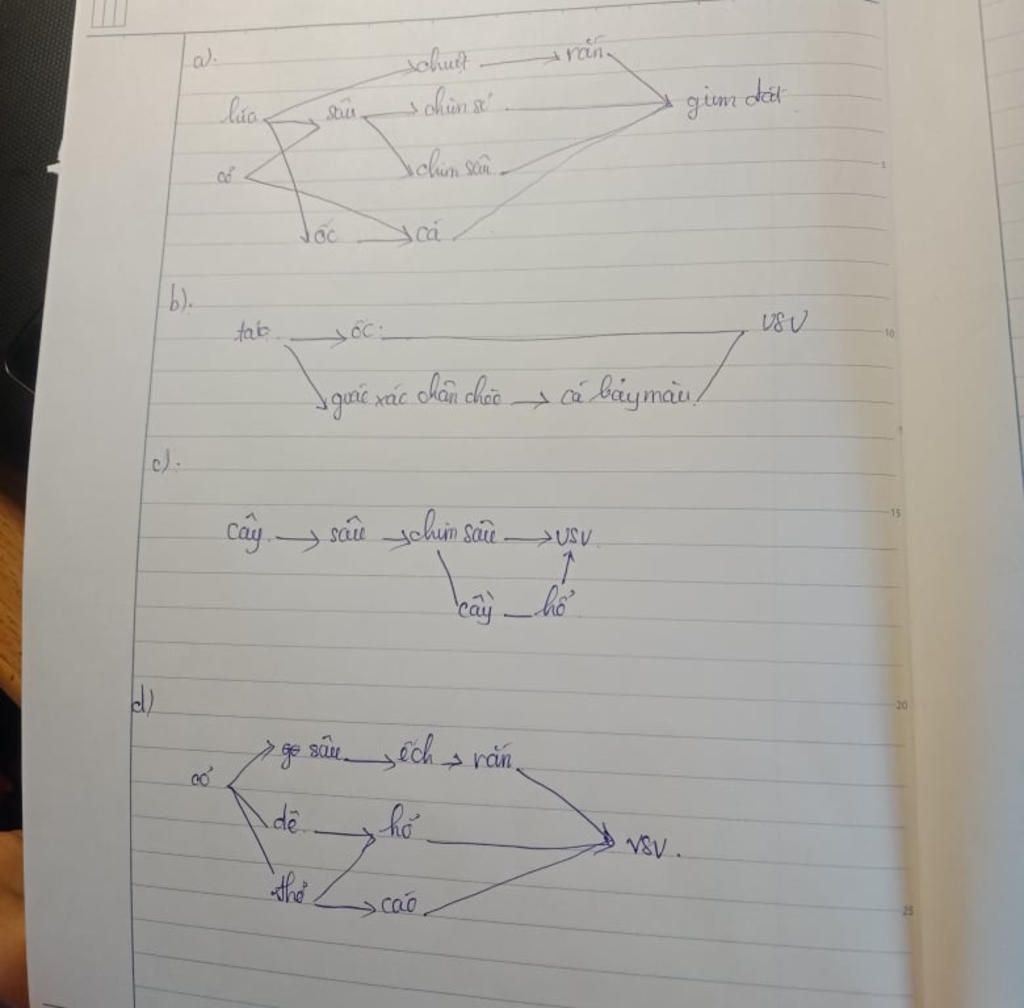 a).
chuột → rắn
lúa sâu → chim sẻ giun đất
cỏ chim sâu
ốc → cá
b).
tab → ốc. VSV
quốc xác chân chèo → cá bảy màu
c).
cây → sâu → chim sâu → VSV
cầy — hổ
d)
sâu → ếch → rắn
cỏ
dê → hổ VSV.
thỏ → cáo
5
10
15
20
25